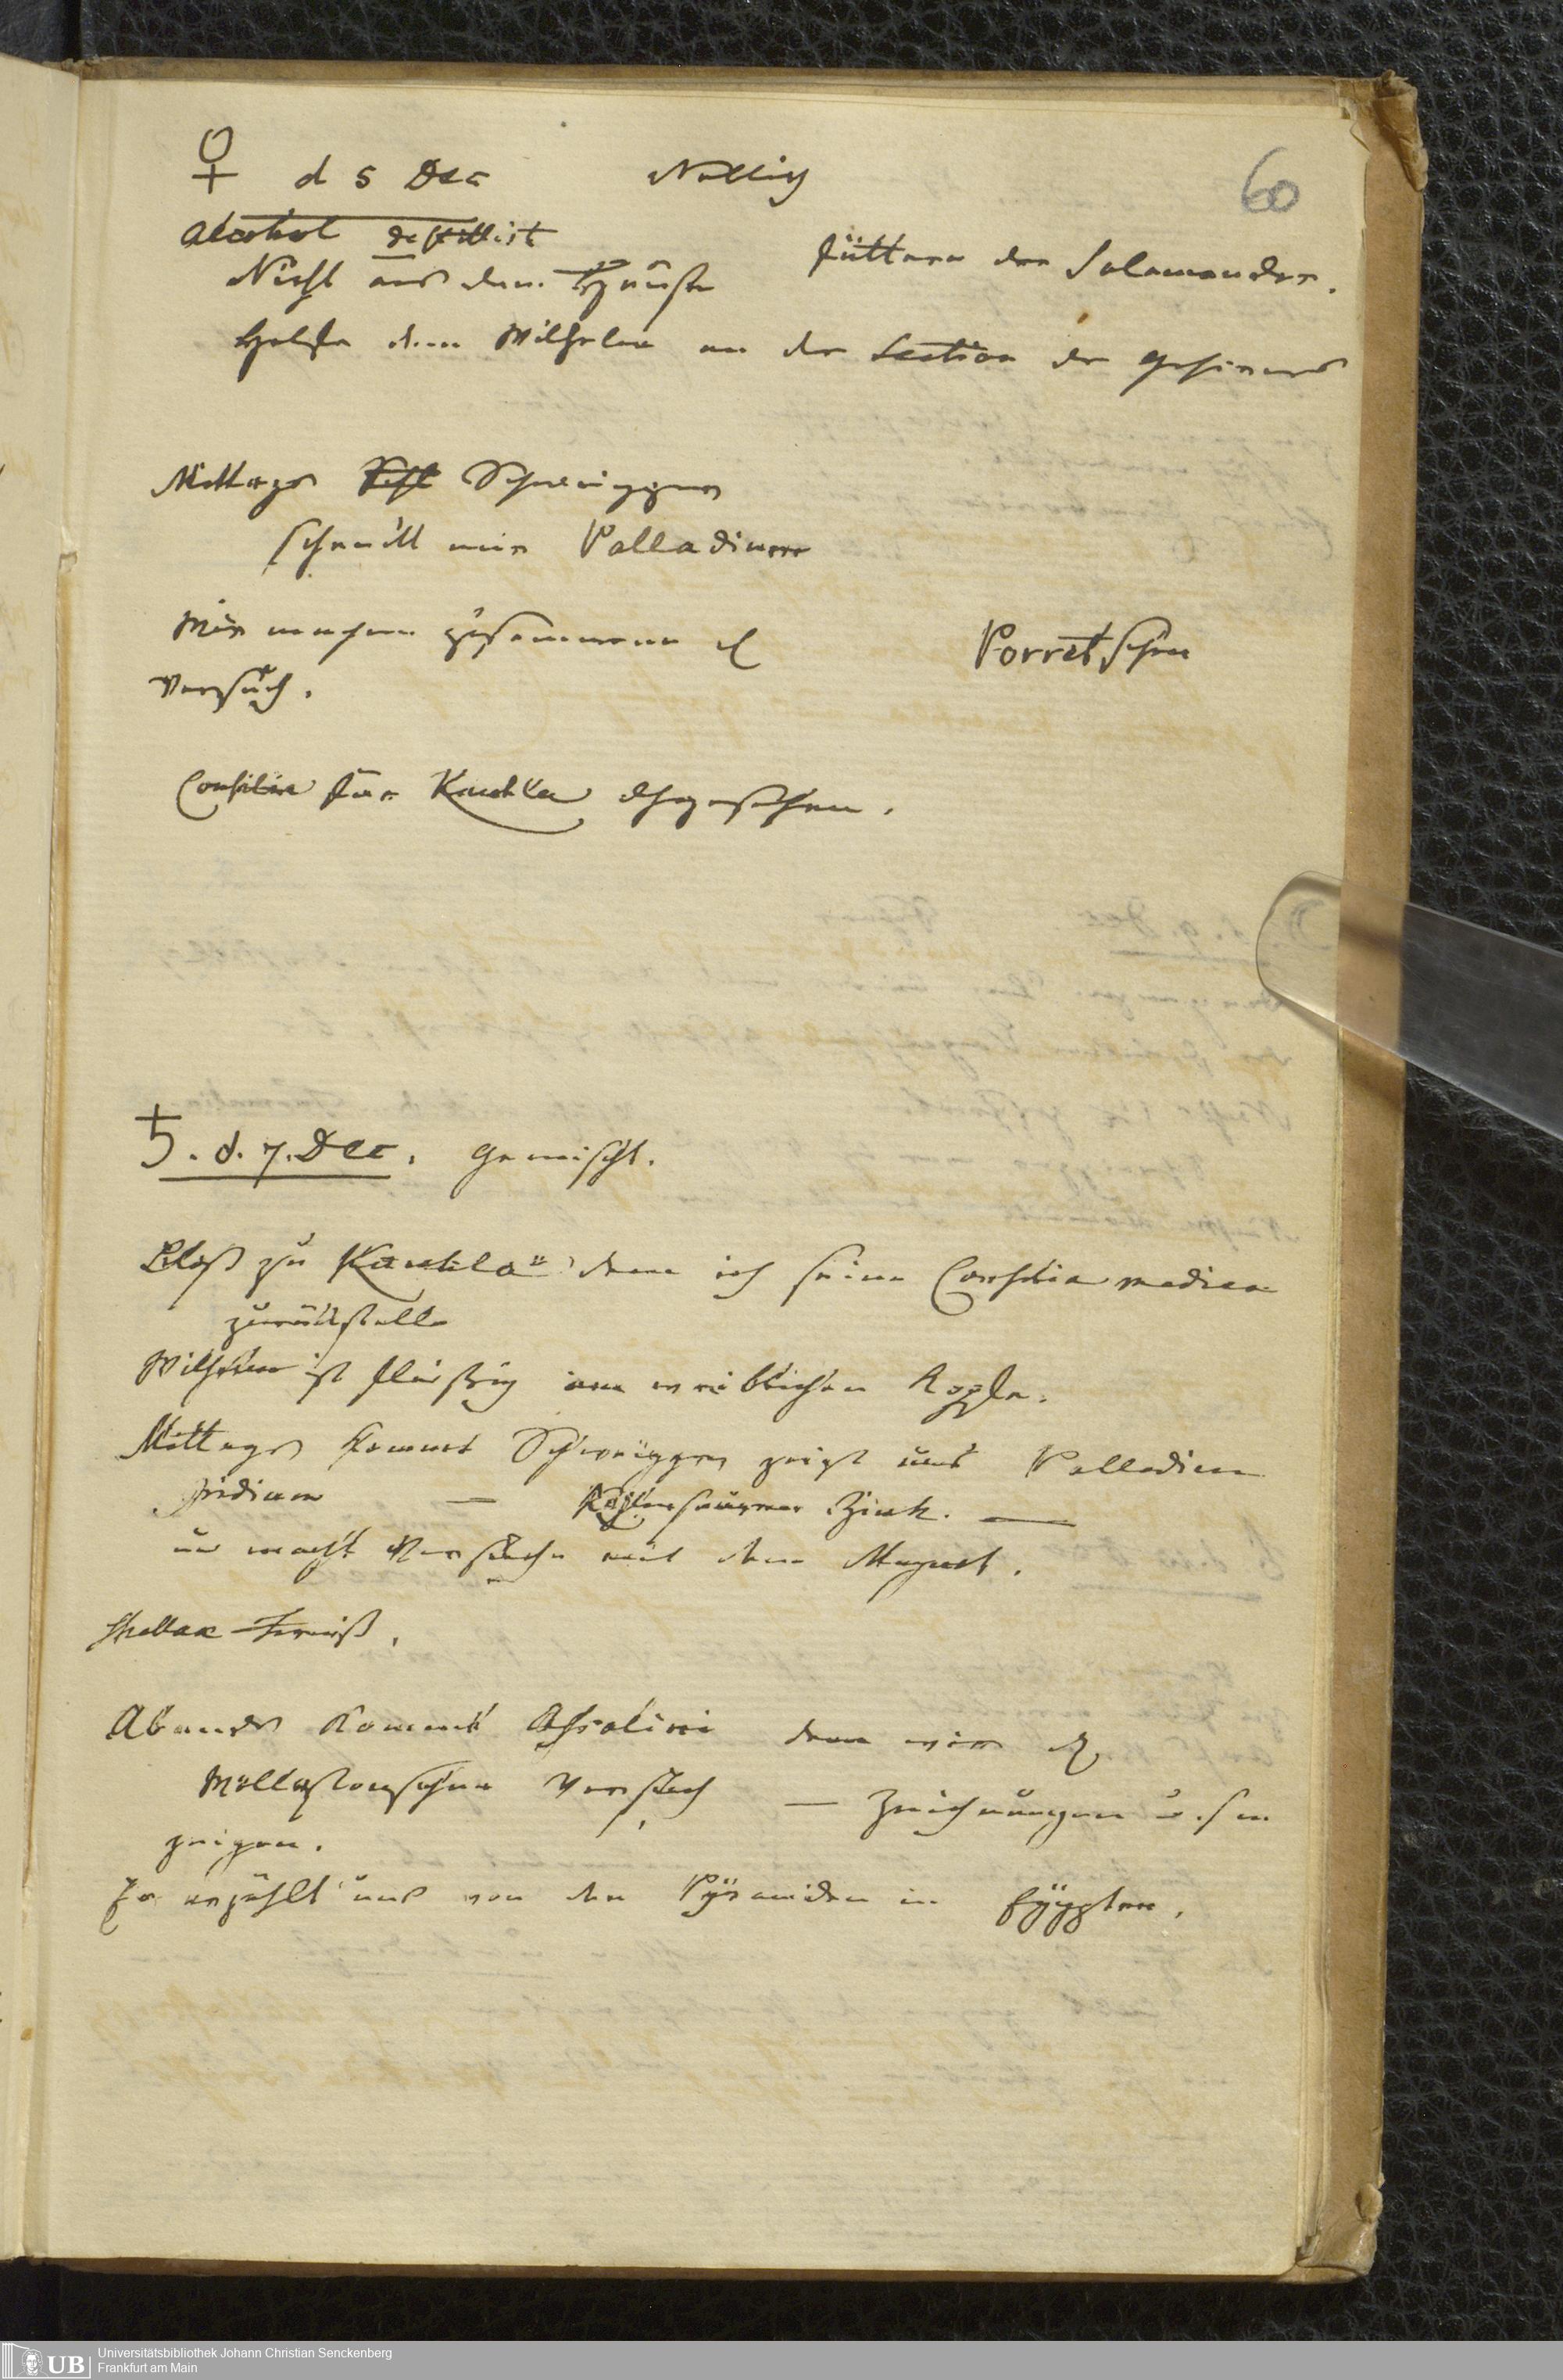 ♀ d 5 Dec Neblig
60
Alcohol destillirt
Nicht aus dem Hause füttere die Salamander.
Helfe dem Wilhelm an der Section des Gehirns
Mittags Schweigger
schenkt mir Palladium
Wir machen zusammen d Porretschen
Versuch.
Consilia für Kaehler
♄. d. 7. Dec. Gemischt.
Bloß zu Kaehler dem ich seine Consilia medica
zurückstelle
Wilhelm ist fleißig am weiblichen Kopfe.
Mittags kommt Schweigger zeigt uns Palladium
Iridium — Kohlensaures Zink. —
u macht Versuche mit dem Magnet.
Shellac Firniß.
Abends kommt Assalini dem wir d
Wollastonschen Versuch — Zeichnungen u. s w
zeigen.
Er erzählt uns von den Pÿramiden in Egÿpten.
Universitätsbibliothek Johann Christian Senckenberg
Frankfurt am Main
UB